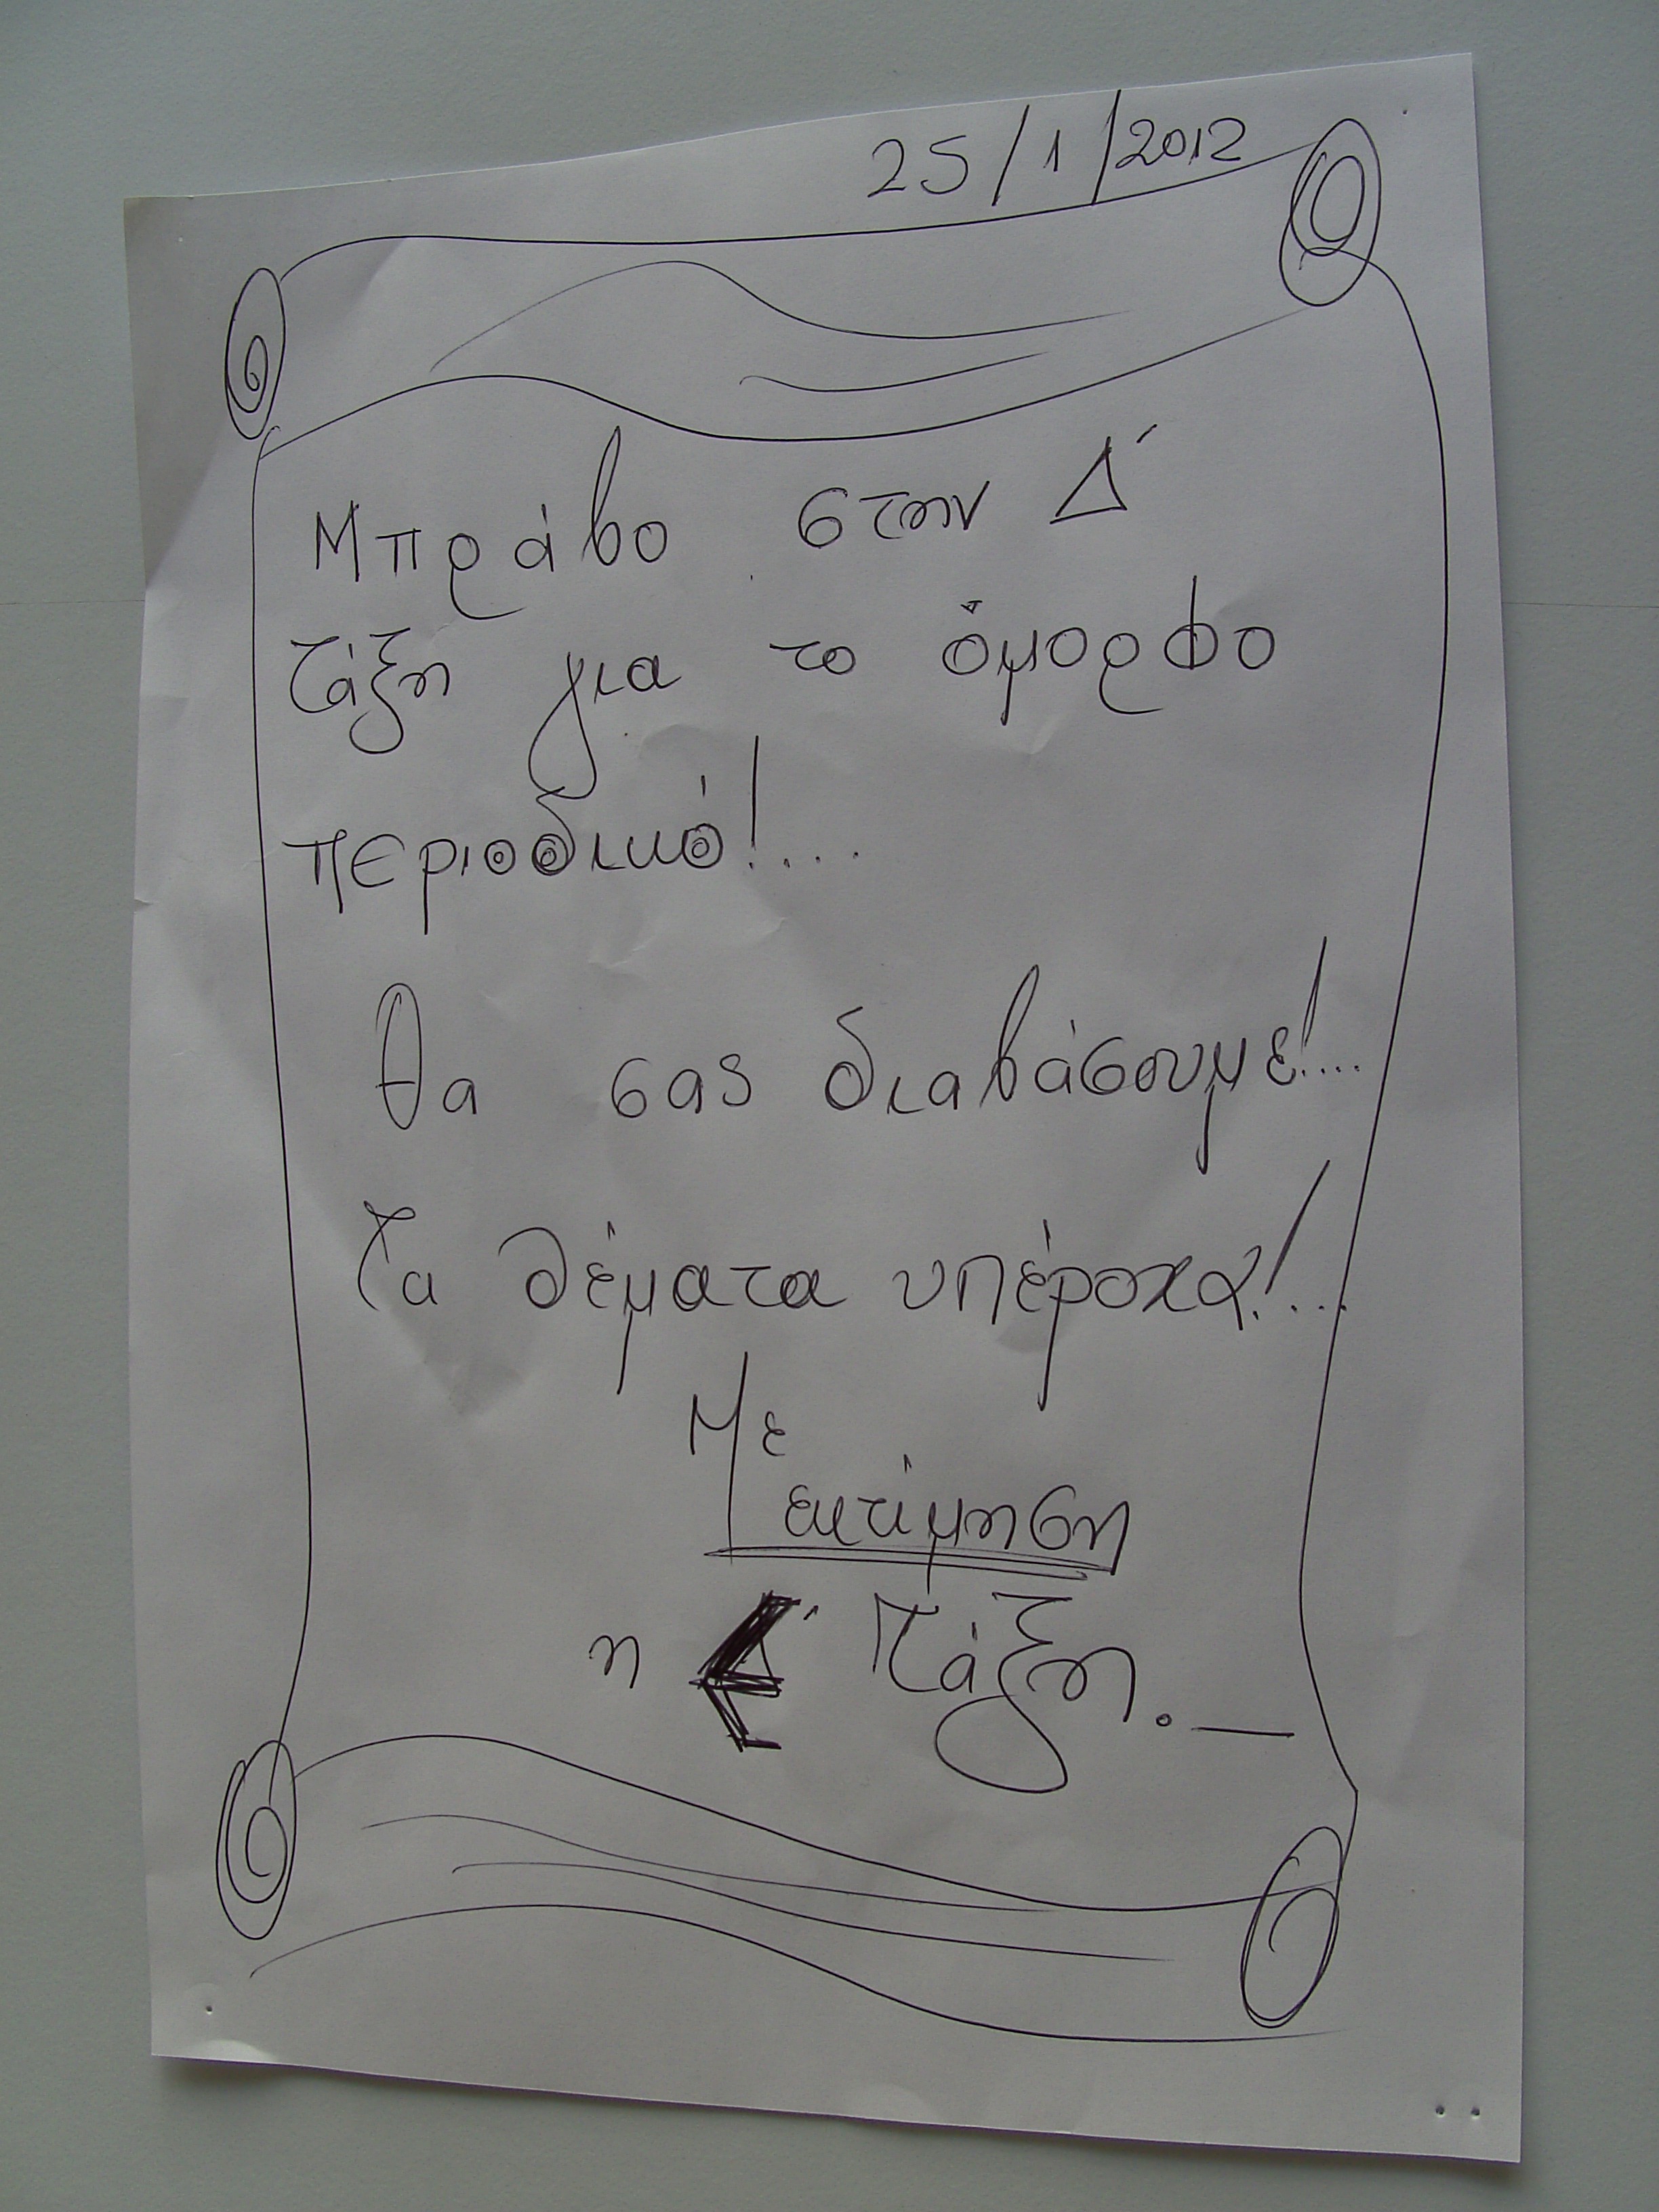 25/1/2012
Μπράβο στην Δ΄
τάξη για το όμορφο
περιοδικό!...
Θα σας διαβάσουμε!...
Τα θέματα υπέροχα!...
Με
εκτίμηση
η Τάξη.